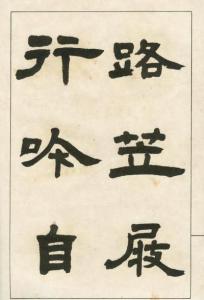 路苙屐
行吟自